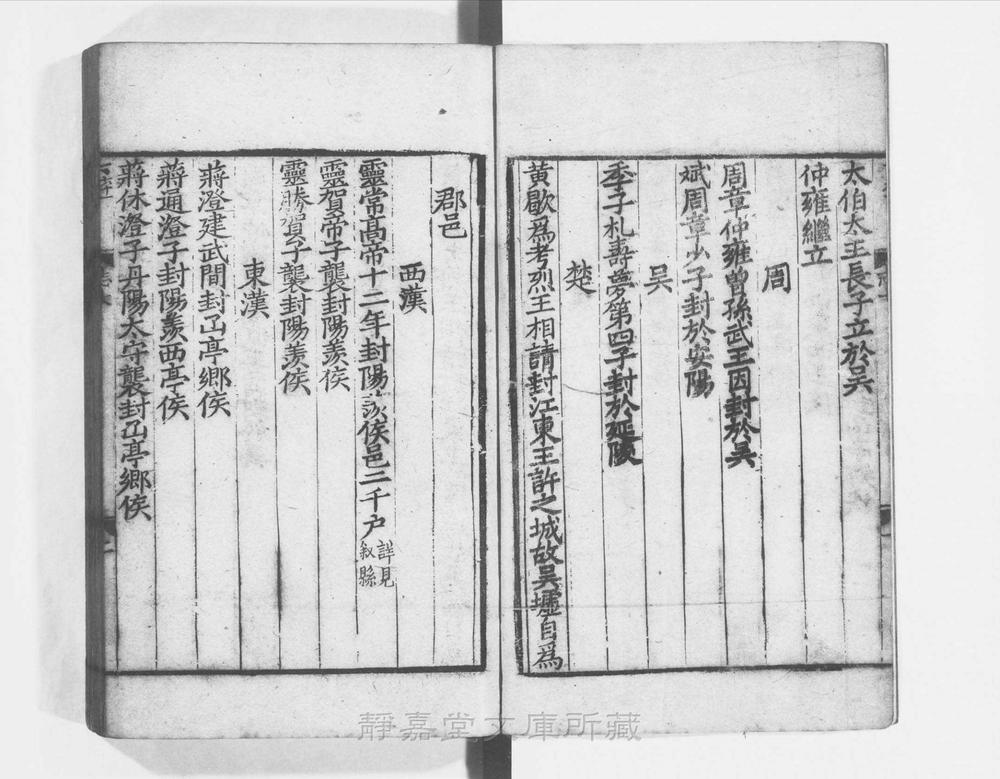 太伯太王長子立於吳
仲雍繼立
周
周章仲雍曾孫武王因封於吳
斌周章少子封於安陽
吳
季子札壽夢第四子封於延陵
楚
黃歇爲考烈王相請封江東王許之城故吳墟自爲
郡邑
西漢
靈常高帝十二年封陽羨侯邑二千户詳見叙縣
靈賀帝子襲封陽羨侯
靈勝賀子襲封陽羨侯
東漢
蔣澄建武間封𠙖亭鄉侯
蔣通澄子封陽羨西亭侯
蔣休澄子丹陽太守襲封𠙖亭鄉侯
靜嘉堂文庫所藏